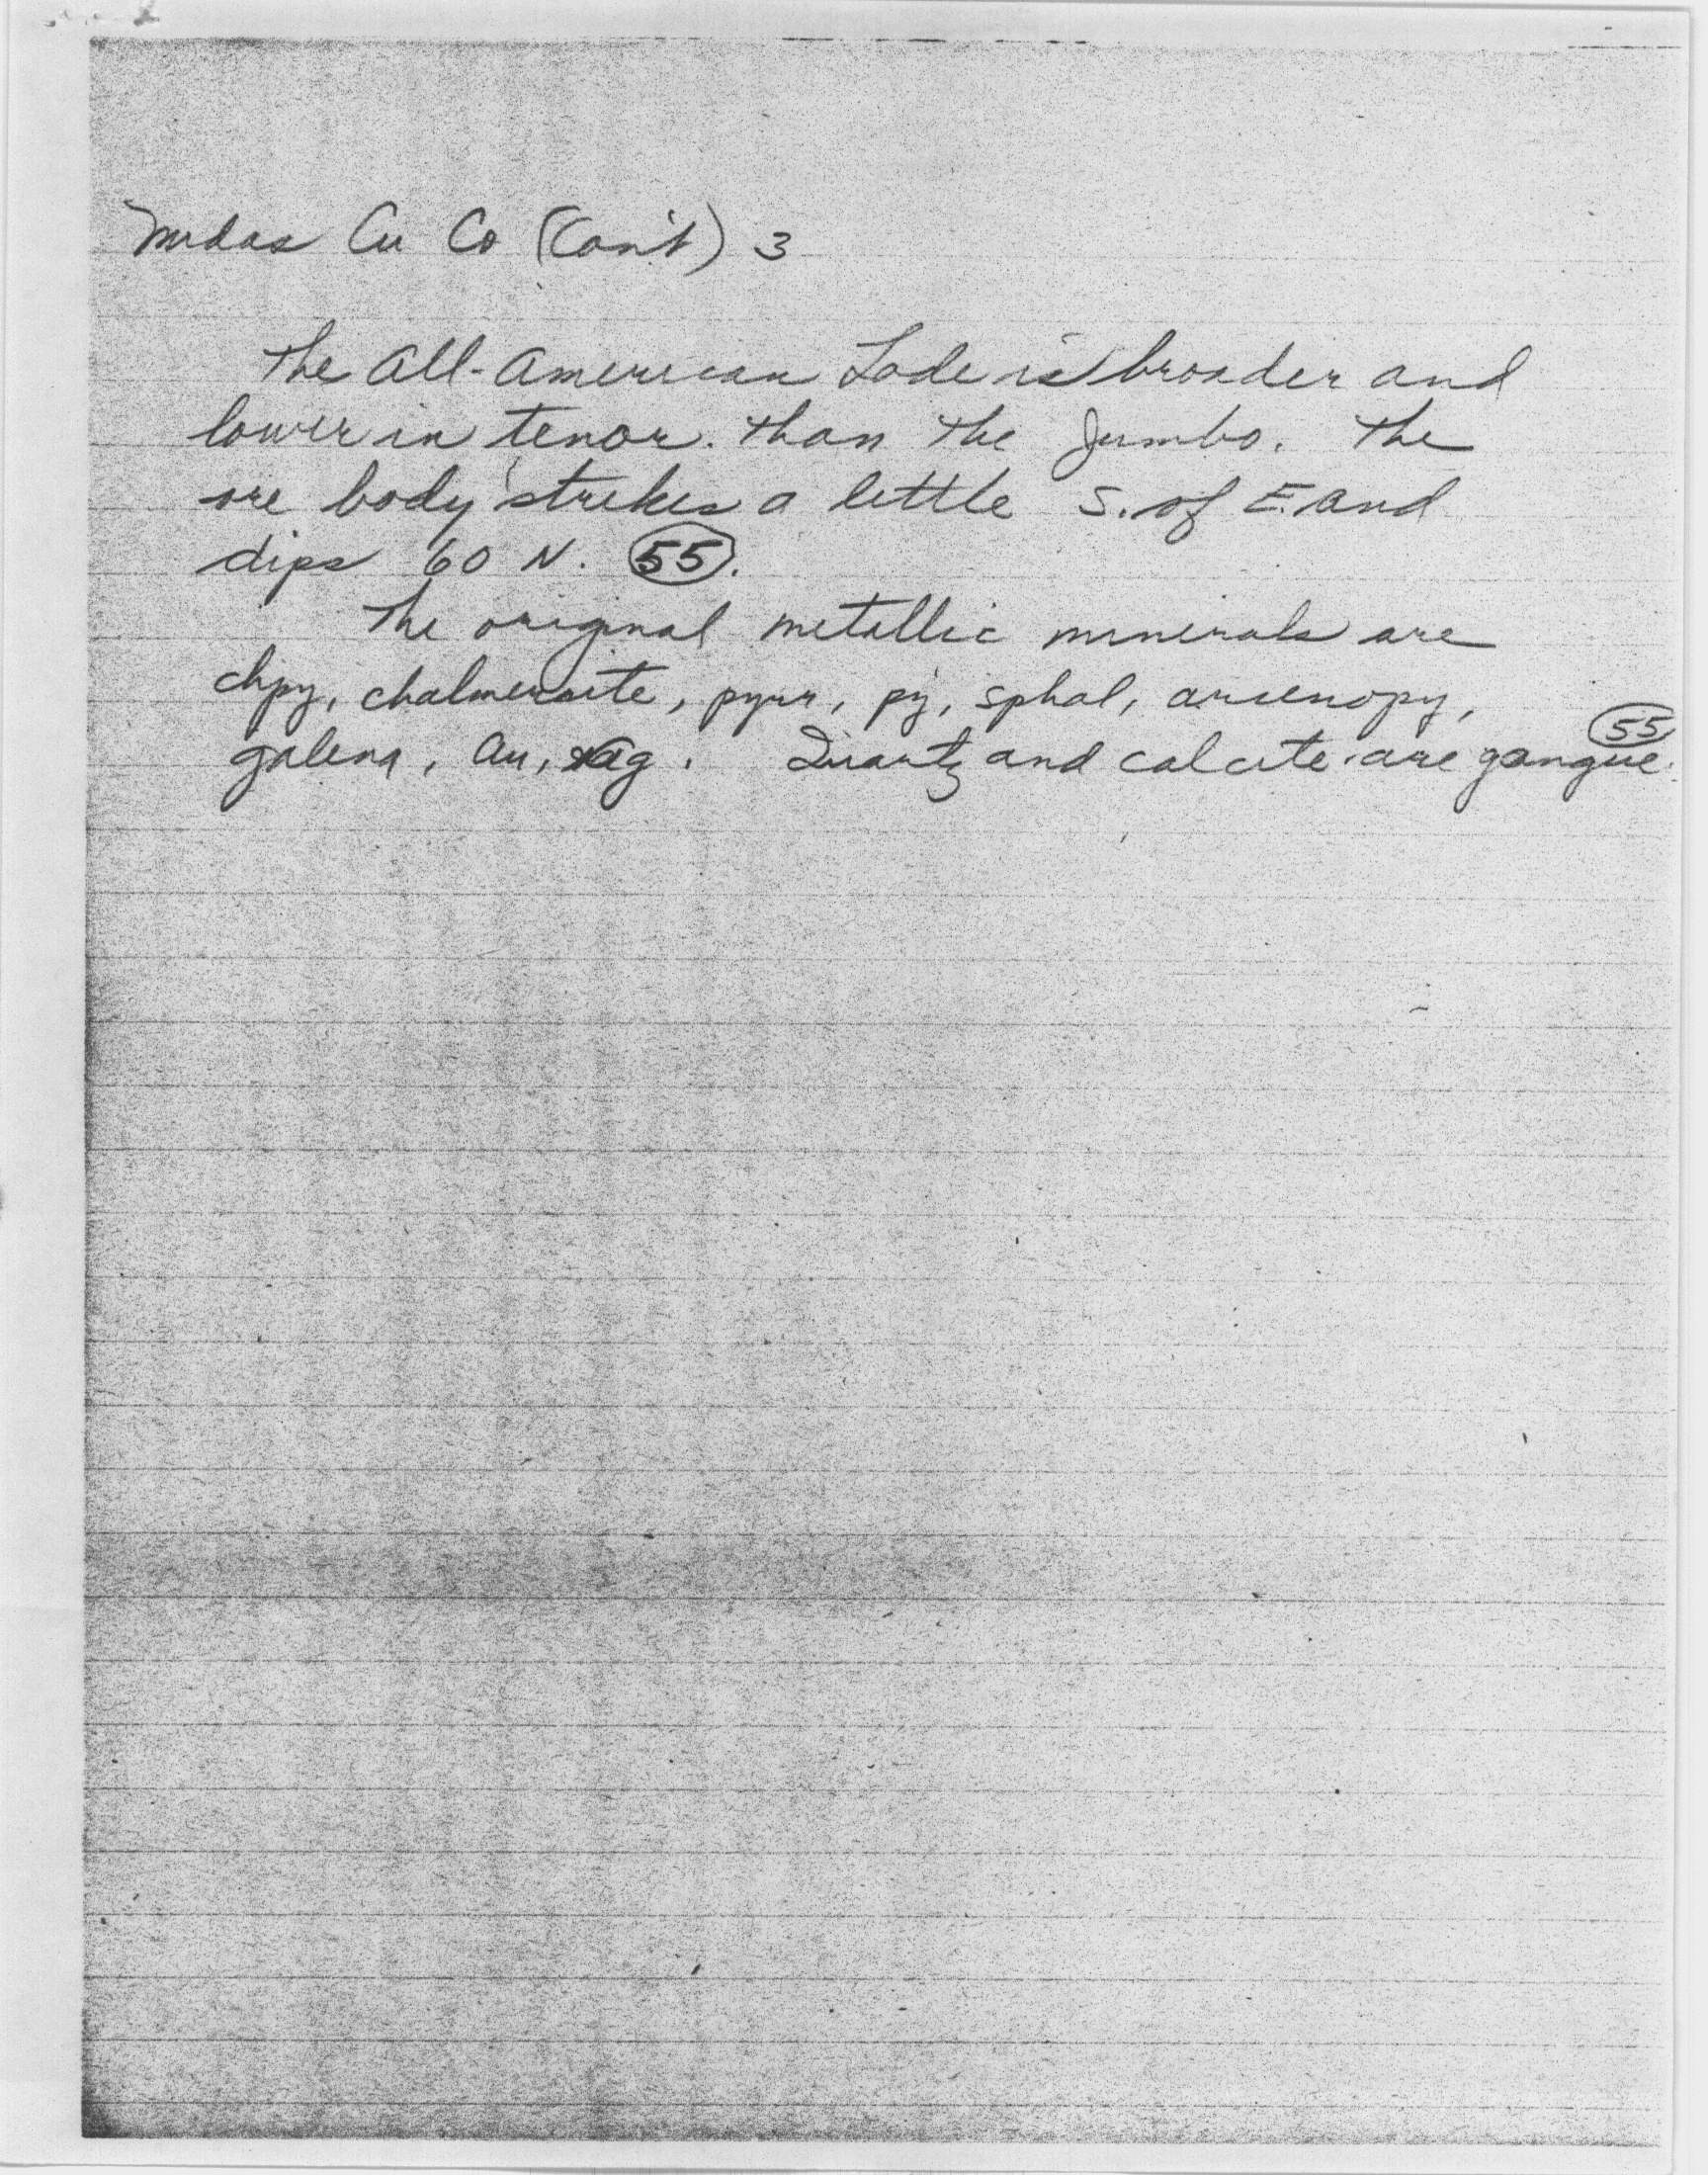 Midas Cu Co (Con't) 3
The All-American Lode is broader and
lower in tenor. than the Jumbo. The
ore body strikes a little S. of E. and
dips 60 N. 55.
The original metallic minerals are
chpy, chalmersite, pyrr, py, sphal, arsenopy,
galena, Au, Ag. Quartz and calcite are gangue. 55